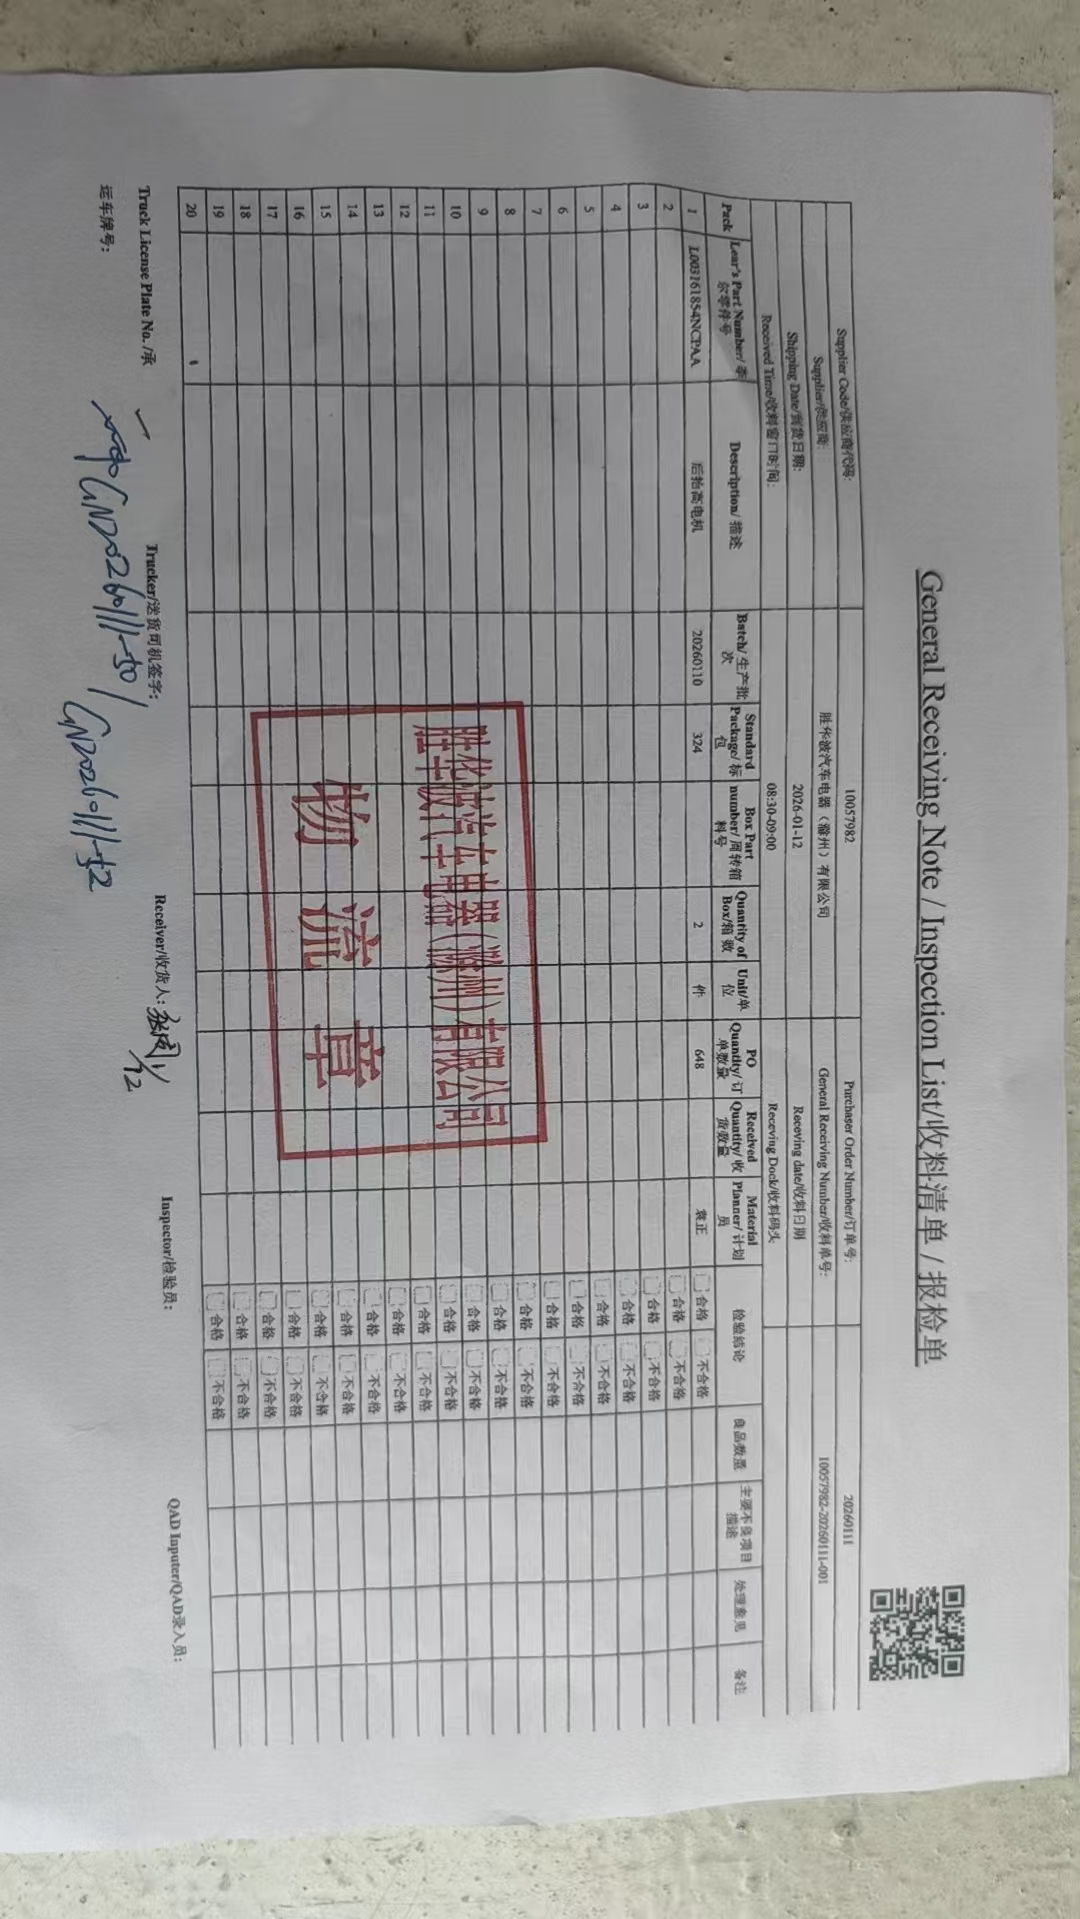 General Receiving Note / Inspection List/收料清单 / 报检单
Supplier Code/供应商代码: 10057982 Purchaser Order Number/订单号: 20260111
Supplier/供应商: 胜华波汽车电器（滁州）有限公司 General Receiving Number/收料单号: 10057982-20260111-001
Shipping Date/到货日期: 2026-01-12 Receving date/收料日期
Received Time/收料窗口时间: 08:30-09:00 Receving Dock/收料码头
Pack Lear's Part Number/ 李尔零件号 Description/ 描述 Batch/ 生产批次 Standard Package/ 标包 Box Part number/ 周转箱料号 Quantity of Box/箱数 Unit/单位 PO Quandity/ 订单数量 Received Quantity/ 收货数量 Material Planner/ 计划员 检验结论 良品数量 主要不良项目描述 处理意见 备注
1 L003161854NCPAA 后抬高电机 20260110 324 2 件 648 袁正 合格 不合格
2 合格 不合格
3 合格 不合格
4 合格 不合格
5 合格 不合格
6 合格 不合格
7 合格 不合格
8 合格 不合格
9 合格 不合格
10 合格 不合格
11 合格 不合格
12 合格 不合格
13 合格 不合格
14 合格 不合格
15 合格 不合格
16 合格 不合格
17 合格 不合格
18 合格 不合格
19 合格 不合格
20 合格 不合格
胜华波汽车电器(滁州)有限公司
物流章
Truck License Plate No. /承运车牌号: Trucker/送货司机签字: Receiver/收货人: 1/12 Inspector/检验员: QAD Inputer/QAD录入员: